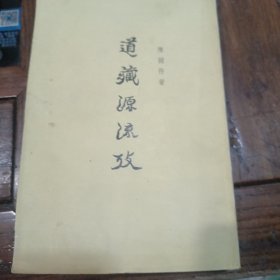 道藏源流攷
陳國符著